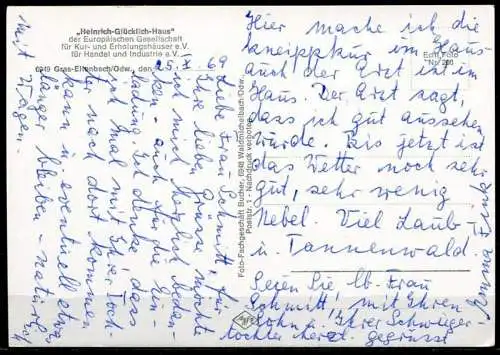 „Heinrich-Glücklich-Haus"
der Europäischen Gesellschaft
für Kur- und Erholungshäuser e.V.
für Handel und Industrie e.V.
6949 Gras-Ellenbach/Odw., den
25. X. 69
Liebe Frau Schmitt, für
Ihre lieben Grüsse möchte
ich mich herzlich bedan-
ken - auch für die Ein-
ladung. Ich denke, dass
ich mal mit Ihrer Toch-
ter nach dort kommen
kann u. eventuell etwas
länger bleiben - natürlich
mit Wagen.
Foto-Fachgeschäft Bucher, 6948 Waldmichelbach/Odw.
Poststr. - Nachdruck verboten
Echt Foto
Nr. 266
Hier mache ich die
Kneippkur im Haus
auch der Arzt ist im
Haus. Der Arzt sagt,
dass ich gut aussehen
würde. Bis jetzt ist
das Wetter noch sehr
gut, sehr wenig
Nebel. Viel Laub-
u. Tannenwald.
Seien Sie lb. Frau
Schmitt, mit Ihren
Sohn u. Ihrer Schwieger-
tochter herzl. gegrüsst